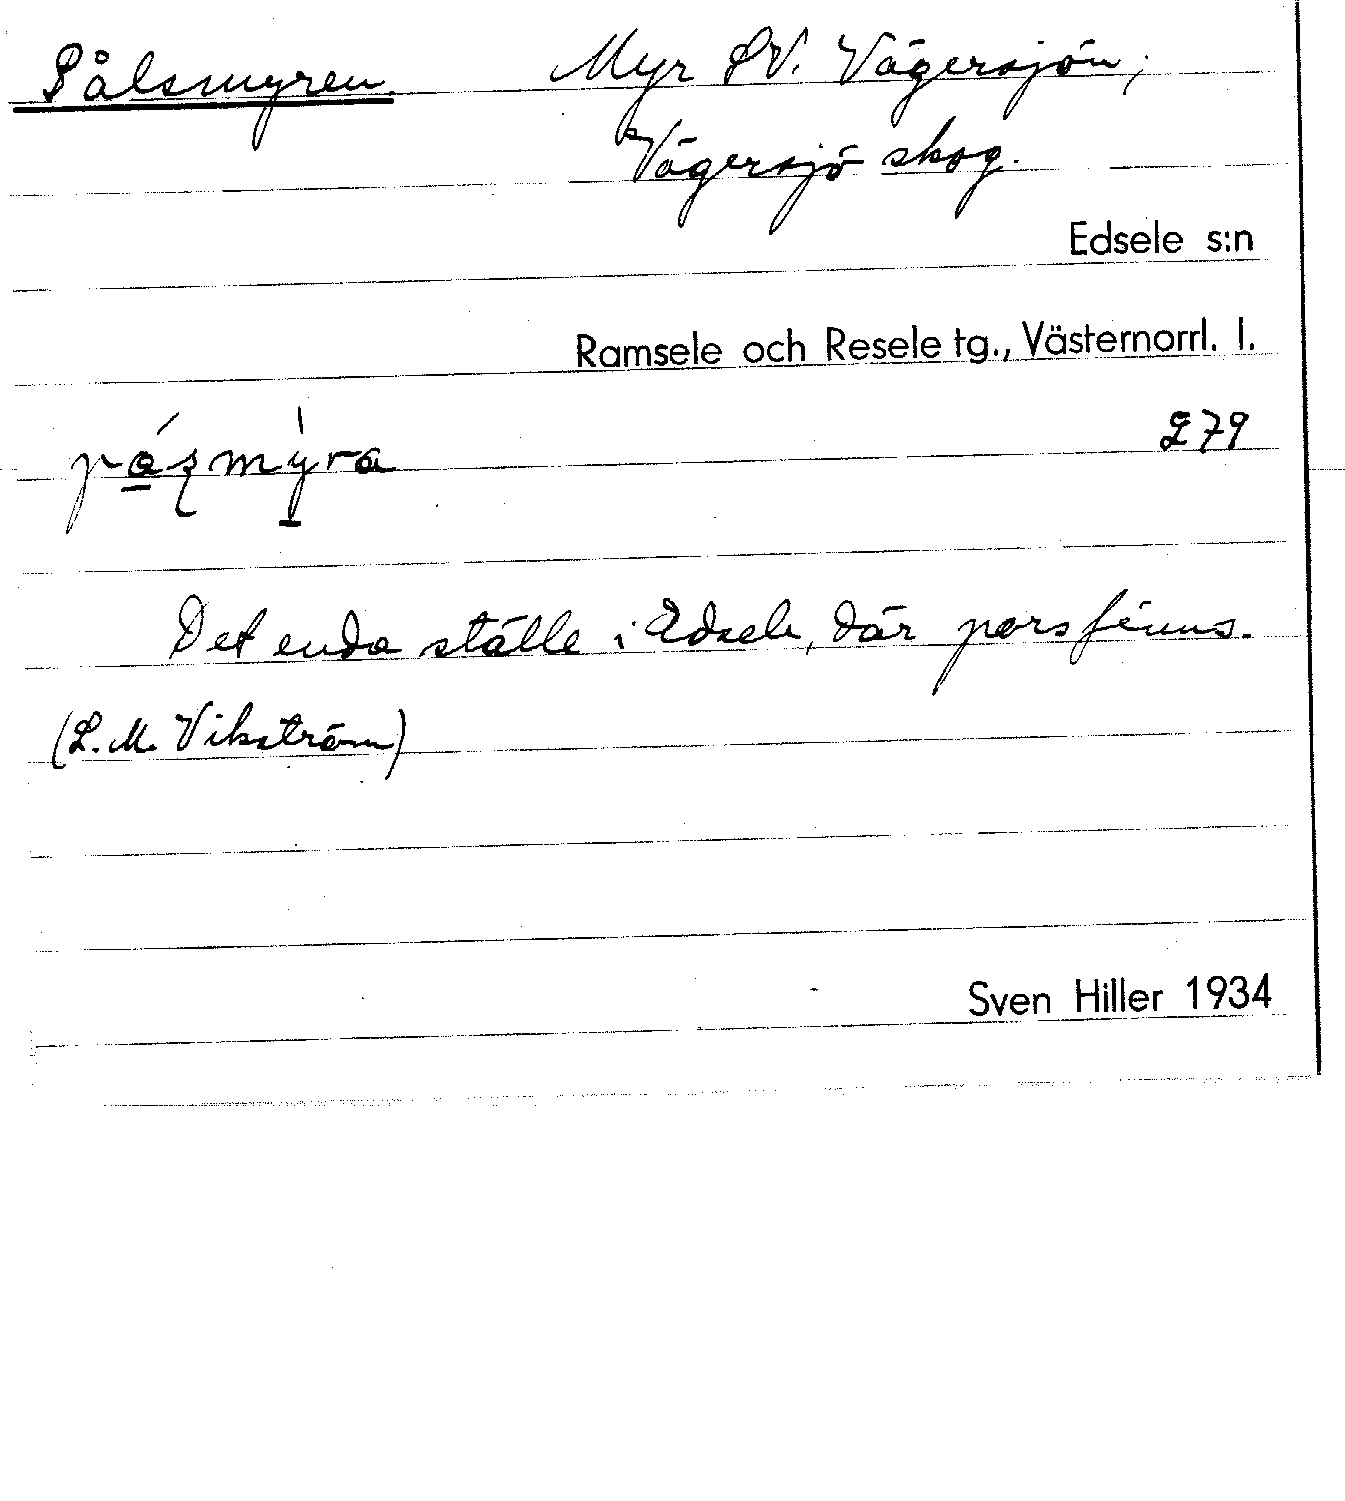 Pålsmyren. Myr SV. Vägersjön;
Vägersjö skog.
Edsele s:n
Ramsele och Resele tg., Västernorrl. l.
279
Det enda ställe i Edsele, där pors finns.
(L. M. Vikström)
Sven Hiller 1934